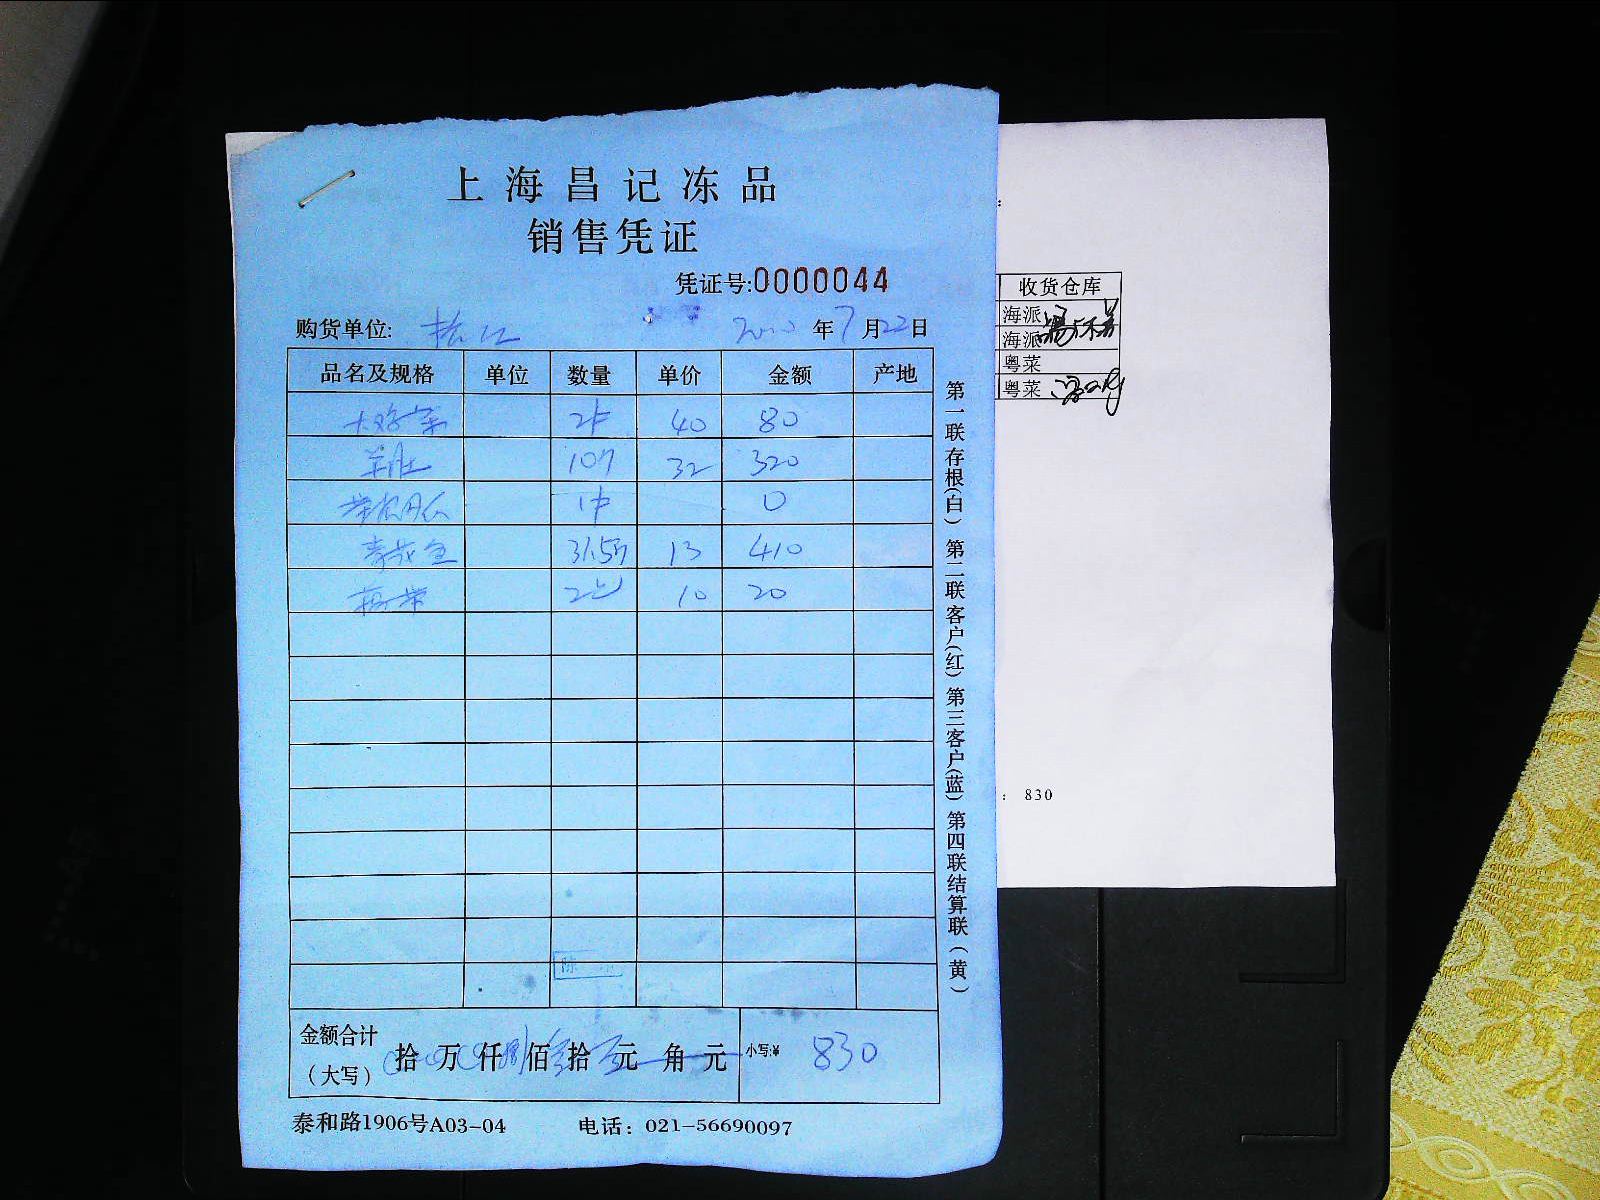 上海昌记冻品
销售凭证
凭证号:0000044
购货单位: 松江 年7月22日
品名及规格 单位 数量 单价 金额 产地
40 80
羊肚 10斤 32 320
0
青花鱼 31.5斤 13 410
10 20
金额合计
（大写） 拾 万 仟 捌佰叁拾 元 角 元 小写:¥ 830
泰和路1906号A03-04 电话：021-56690097
第一联存根(白) 第二联客户(红) 第三客户(蓝) 第四联结算联(黄)
收货仓库
海派
海派
粤菜
粤菜
: 830